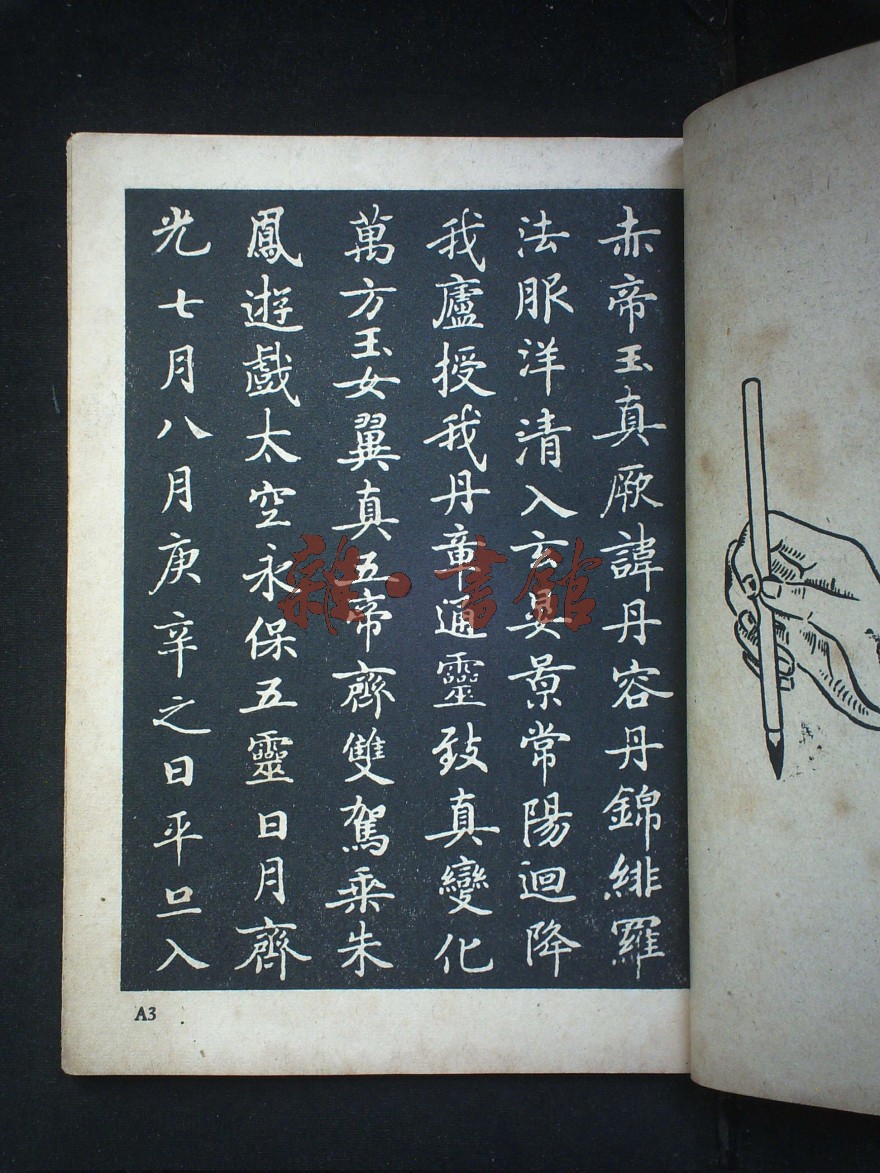 赤帝玉真厥諱丹容丹錦緋羅
法服洋清入玄晏景常陽迴降
我廬授我丹章通靈致真變化
萬方玉女翼真五帝齊雙駕乘朱
鳳遊戲太空永保五靈日月齊
光七月八月庚辛之日平旦入
雜·書館
A3